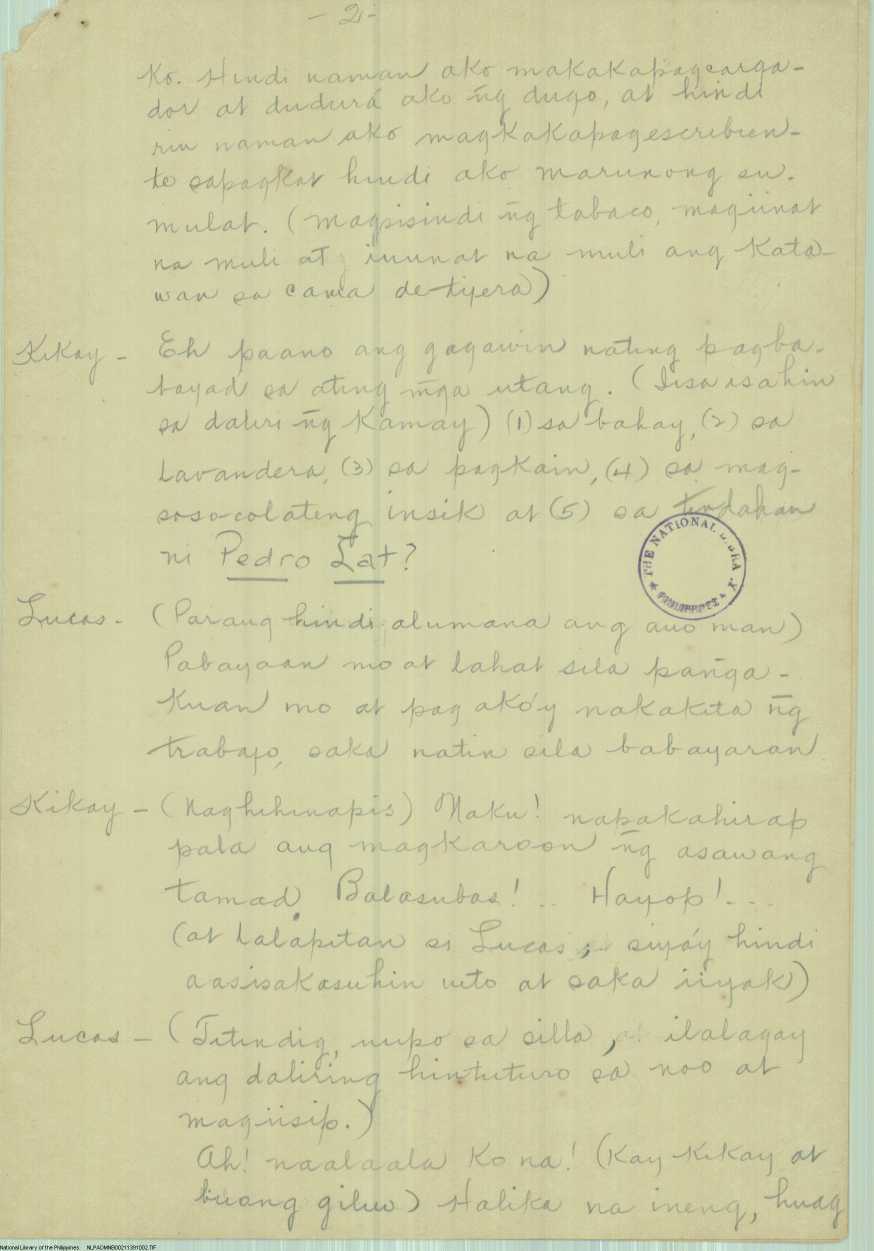 - 2 -
Ko. Hindi naman ako makakapagcarga-
dor at dudurá ako n̄g dugo, at hindi
rin naman ako magkakapagescribien-
te sapagkat hindi ako marunong su-
mulat. (magsisindi n̄g tabaco, magiinat
na muli at iuunat na muli ang Kata-
wan sa cama de-tijera)
Kikay - Eh paano ang gagawin nating pagba-
bayad sa ating mn̄ga utang. (Iisaisahin
sa daliri n̄g Kamay) (1) sa bahay, (2) sa
Lavandera, (3) sa pagkain, (4) sa mag-
soso-colateng insik at (5) sa tindahan
ni Pedro Lat?
THE NATIONAL LIBRARY
PHILIPPINES
Lucas - (Parang hindi alumana ang ano man)
Pabayaan mo at lahat sila pan̄ga-
Kuan mo at pag ako'y nakakita n̄g
trabajo, saka natin sila babayaran
Kikay - (Naghihinapis) Naku! napakahirap
pala ang magkaroon n̄g asawang
tamad Balasubas! .. Hayop! ...
(at lalapitan si Lucas; siya'y hindi
aasisakasuhin nito at saka iiyak)
Lucas - (Titindig, uupo sa silla, at ilalagay
ang daliring hintuturo sa noo at
magiisip.)
Ah! naalaala Ko na! (Kay Kikay at
buong giliw) Halika na ineng, huag
National Library of the Philippines NLPADMNB00211391002.TIF